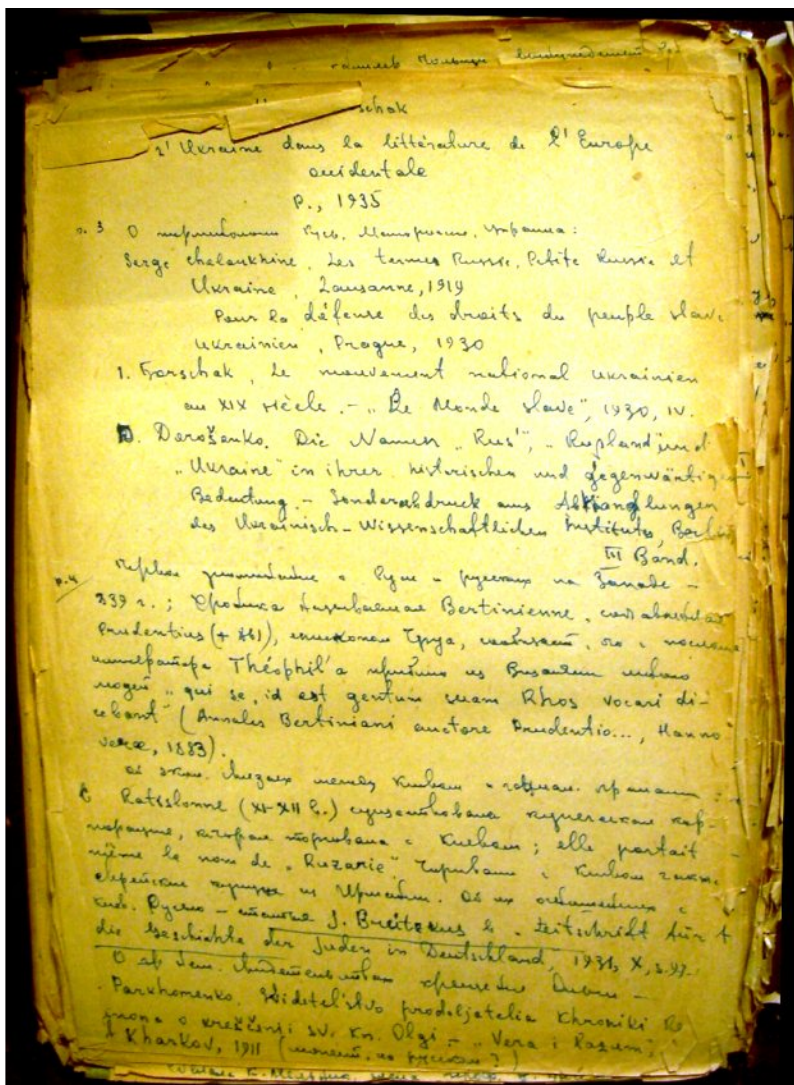 schak
L'Ukraine dans la littérature de l'Europe
occidentale
P., 1935
p. 3 О терминологии Русь, Малороссия, Украина:
Serge Cheloukhine, Les termes Russie, Petite Russie et
Ukraine, Lausanne, 1919
Pour la défense des droits du peuple slave
ukrainien, Prague, 1930
1. Borschak, Le mouvement national ukrainien
au XIX siècle. - „Le Monde slave", 1930, IV.
D. Dorošenko. Die Namen „Rus'", „Rußland" und
„Ukraine" in ihrer historischen und gegenwärtigen
Bedeutung. - Sonderabdruck aus Abhandlungen
des Ukrainisch-Wissenschaftlichen Instituts, Berlin
III Band.
p. 4 Первое упоминание о Руси и русских на Западе -
839 г.; Хроника называемая Bertinienne, составленная
Prudentius (+ 861), епископом Труа, сообщает, что с послами
императора Théophil'а прибыло из Византии много
людей „qui se, id est gentem suam Rhos vocari di-
cebant" (Annales Bertiniani auctore Prudentio..., Hanno-
verae, 1883).
Об экон. связях между Киевом и
В Ratisbonne (XI-XII в.) существовала купеческая кор-
порация, которая торговала с Киевом; elle portait
même le nom de „Ruzarie". Торговали с Киевом также
еврейские купцы из Об их отношениях с
Киев. Русью - статья J. Breitzkus в „Zeitschrift für
die Geschichte der Juden in Deutschland, 1931, X, s. 97.
О крещение Ольги -
Parkhomenko. Sviditel'stvo prodoljatelia Khroniki Re
ginona o kreščenji sv. kn. Olgi - „Vera i Razum",
Kharkov, 1911 (может, по русски?)